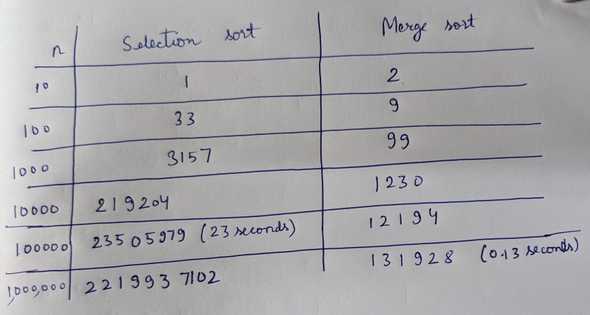 n Selection sort Merge sort
10 1 2
100 33 9
1000 3157 99
10000 219204 1230
100000 23505979 (23 seconds) 12194
1,000,000 2219937102 131928 (0.13 seconds)